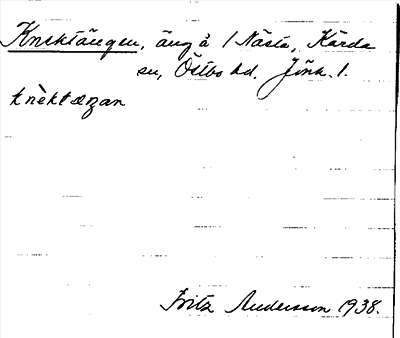 Knektängen, äng å 1 Nästa, Kärda
sn, Östbo hd. Jönk. l.
knὲktæŋan
Fritz Andersson 1938.